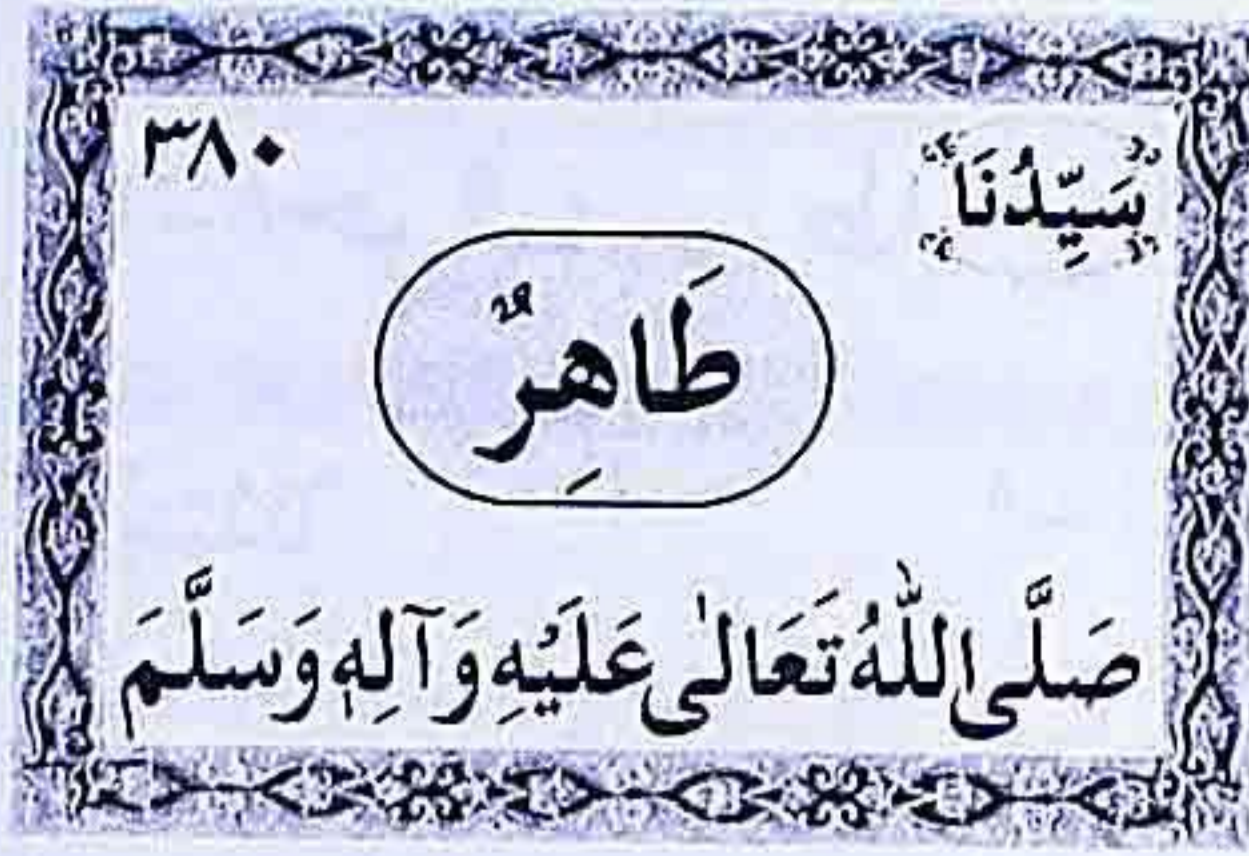 سَيِّدُنَا
٣٨٠
طَاهِرٌ
صَلَّى اللّٰهُ تَعَالٰى عَلَيْهِ وَآلِهٖ وَسَلَّمَ